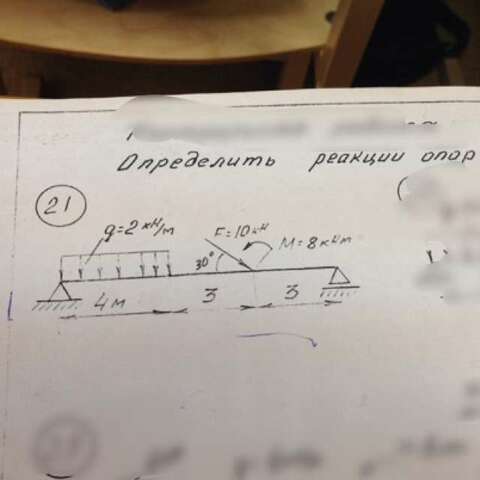 Определить реакции опор
21
q=2 кН/м
F=10 кН
M=8 кНм
30°
4 м 3 3